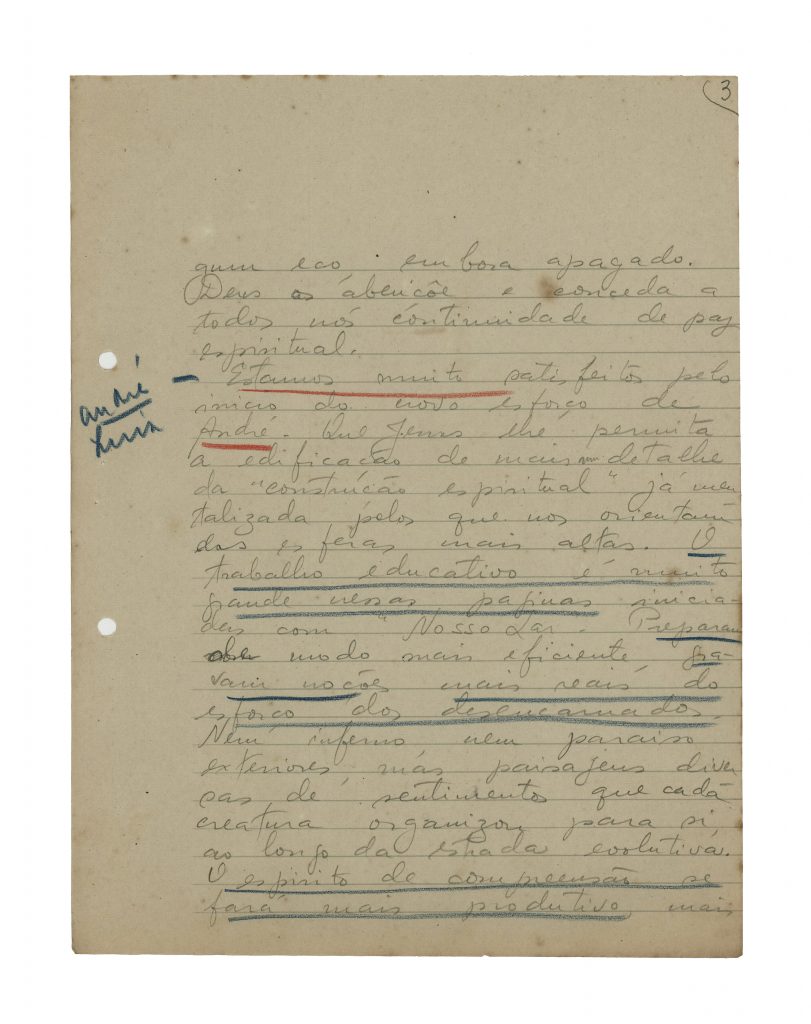 3
gum eco embora apagado.
Deus os abençôe e conceda a
todos nós continuidade de paz
espiritual.
André
Luiz
– Estamos muito satisfeitos pelo
inicio do novo esforço de
André. Que Jesus lhe permita
a edificação de mais detalhe
da "construcão espiritual" já men
talizada pelos que nos orientam
das esferas mais altas. O
trabalho educativo é muito
grande nessas paginas inicia-
das com "Nosso Lar. Preparam
modo mais eficiente, gra-
vam nocões mais reais do
esforço dos desencarnados.
Nem inferno nem paraiso
exteriores, mas paisajens diver
sas de sentimentos que cada
creatura organizou para si,
ao longo da estrada evolutiva.
O espirito de compreensão se
fará mais produtivo, mais